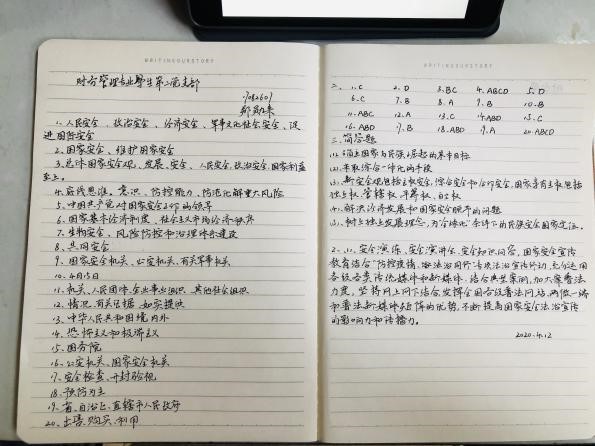 WRITINGOURSTORY
财务管理专业学生第二党支部
1、人民安全、政治安全、经济安全、军事文化社会安全、促
进国际安全
2、国家安全、维护国家安全
3、总体国家安全观、发展、安全、人民安全、政治安全、国家利益
至上。
4、底线思维、意识、防控能力、防范化解重大风险
5、中国共产党对国家安全工作的领导
6、国家基本经济制度、社会主义市场经济秩序
7、生物安全、风险防控和治理体系建设
8、共同安全
9、国家安全机关、公安机关、有关军事机关
10、4月15日
11、机关、人民团体、企业事业组织、其他社会组织
12、情况、有关证据、如实提供
13、中华人民共和国境内外
14、恐怖主义和极端主义
15、国务院
16、公安机关、国家安全机关
17、安全检查、开封验视
18、预防为主
19、省、自治区、直辖市人民政府
20、出售、购买、利用
WRITINGOURSTORY
二、1.C 2.D 3.BC 4.ABCD 5.D
6.C 7.B 8.A 9.B 10.B
11.ABC 12.A 13.C 14.ABD 15.C
16.ABD 17.B 18.ABD 19.A 20.ABCD
三、简答题
(2)采取综合一体化的手段
(3)新安全观包括主权安全、综合安全和合作安全,国家享有主权包括
独立权、管辖权、平等权、自卫权
(4)解决经济发展和国家安全脱节的问题
2、(1)、安全演练、安全演讲会、安全知识问答,国家安全宣传
教育结合“防控疫情、法治同行”专项法治宣传行动,充分运用
各级各类传统媒体和新媒体,结合典型案例,加大宣传
力度,坚持网上网下结合,发挥全国各级普法网站、两微一端
和普法新媒体矩阵的优势,不断提高国家安全法治宣传
的影响力和传播力。
2020.4.12